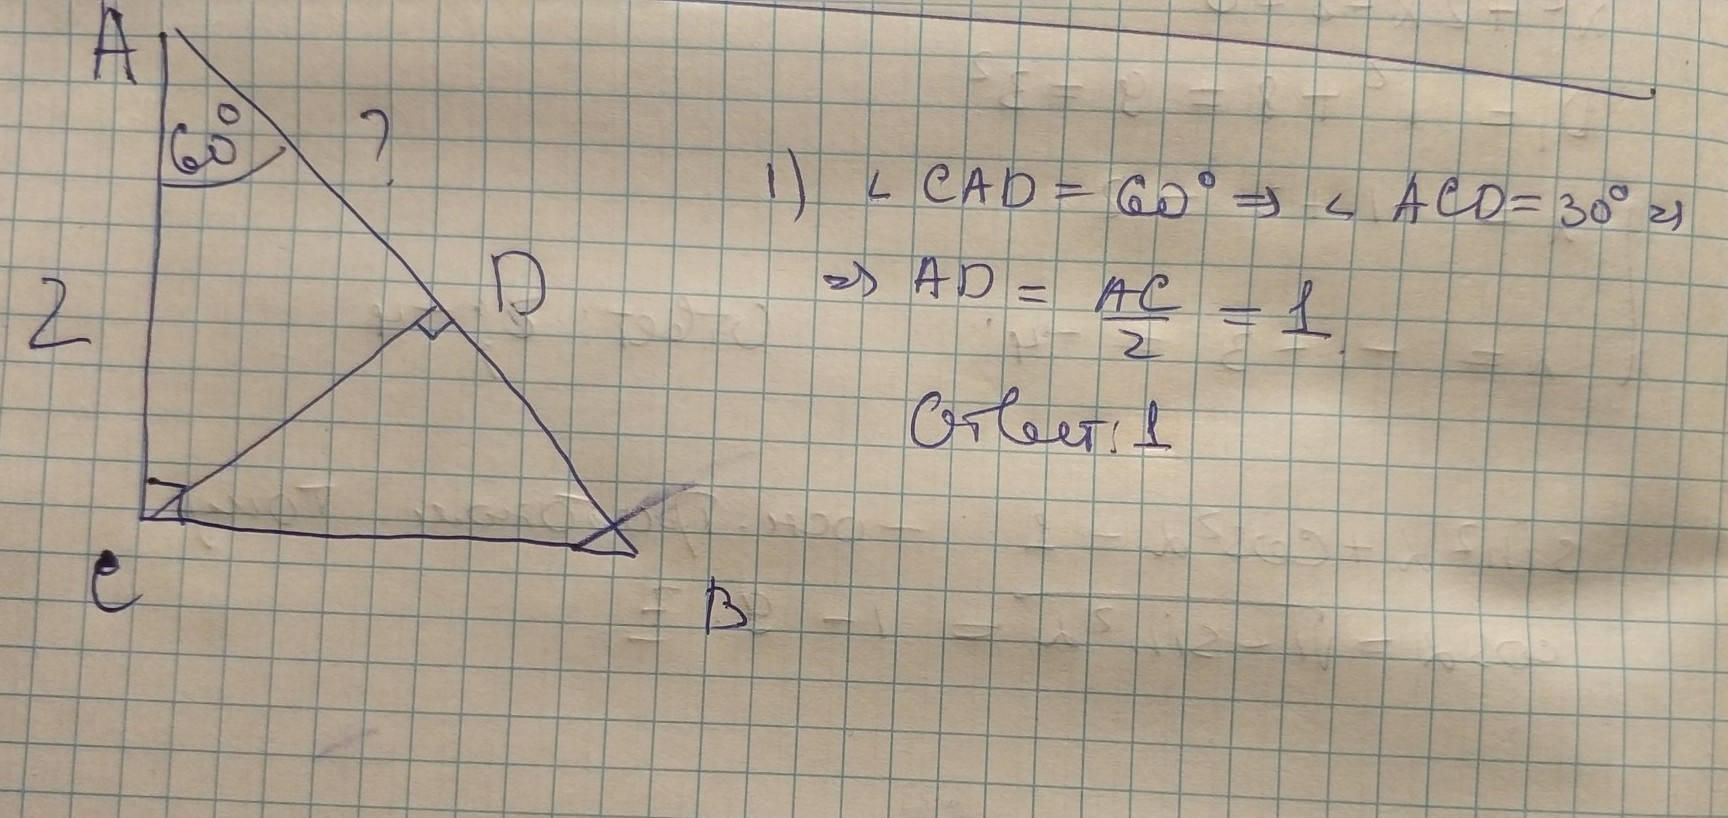 A
60°
?
D
2
C
B
1) ∠ CAD = 60° ⇒ ∠ ACD = 30° ⇒
⇒ AD = AC/2 = 1
Ответ: 1